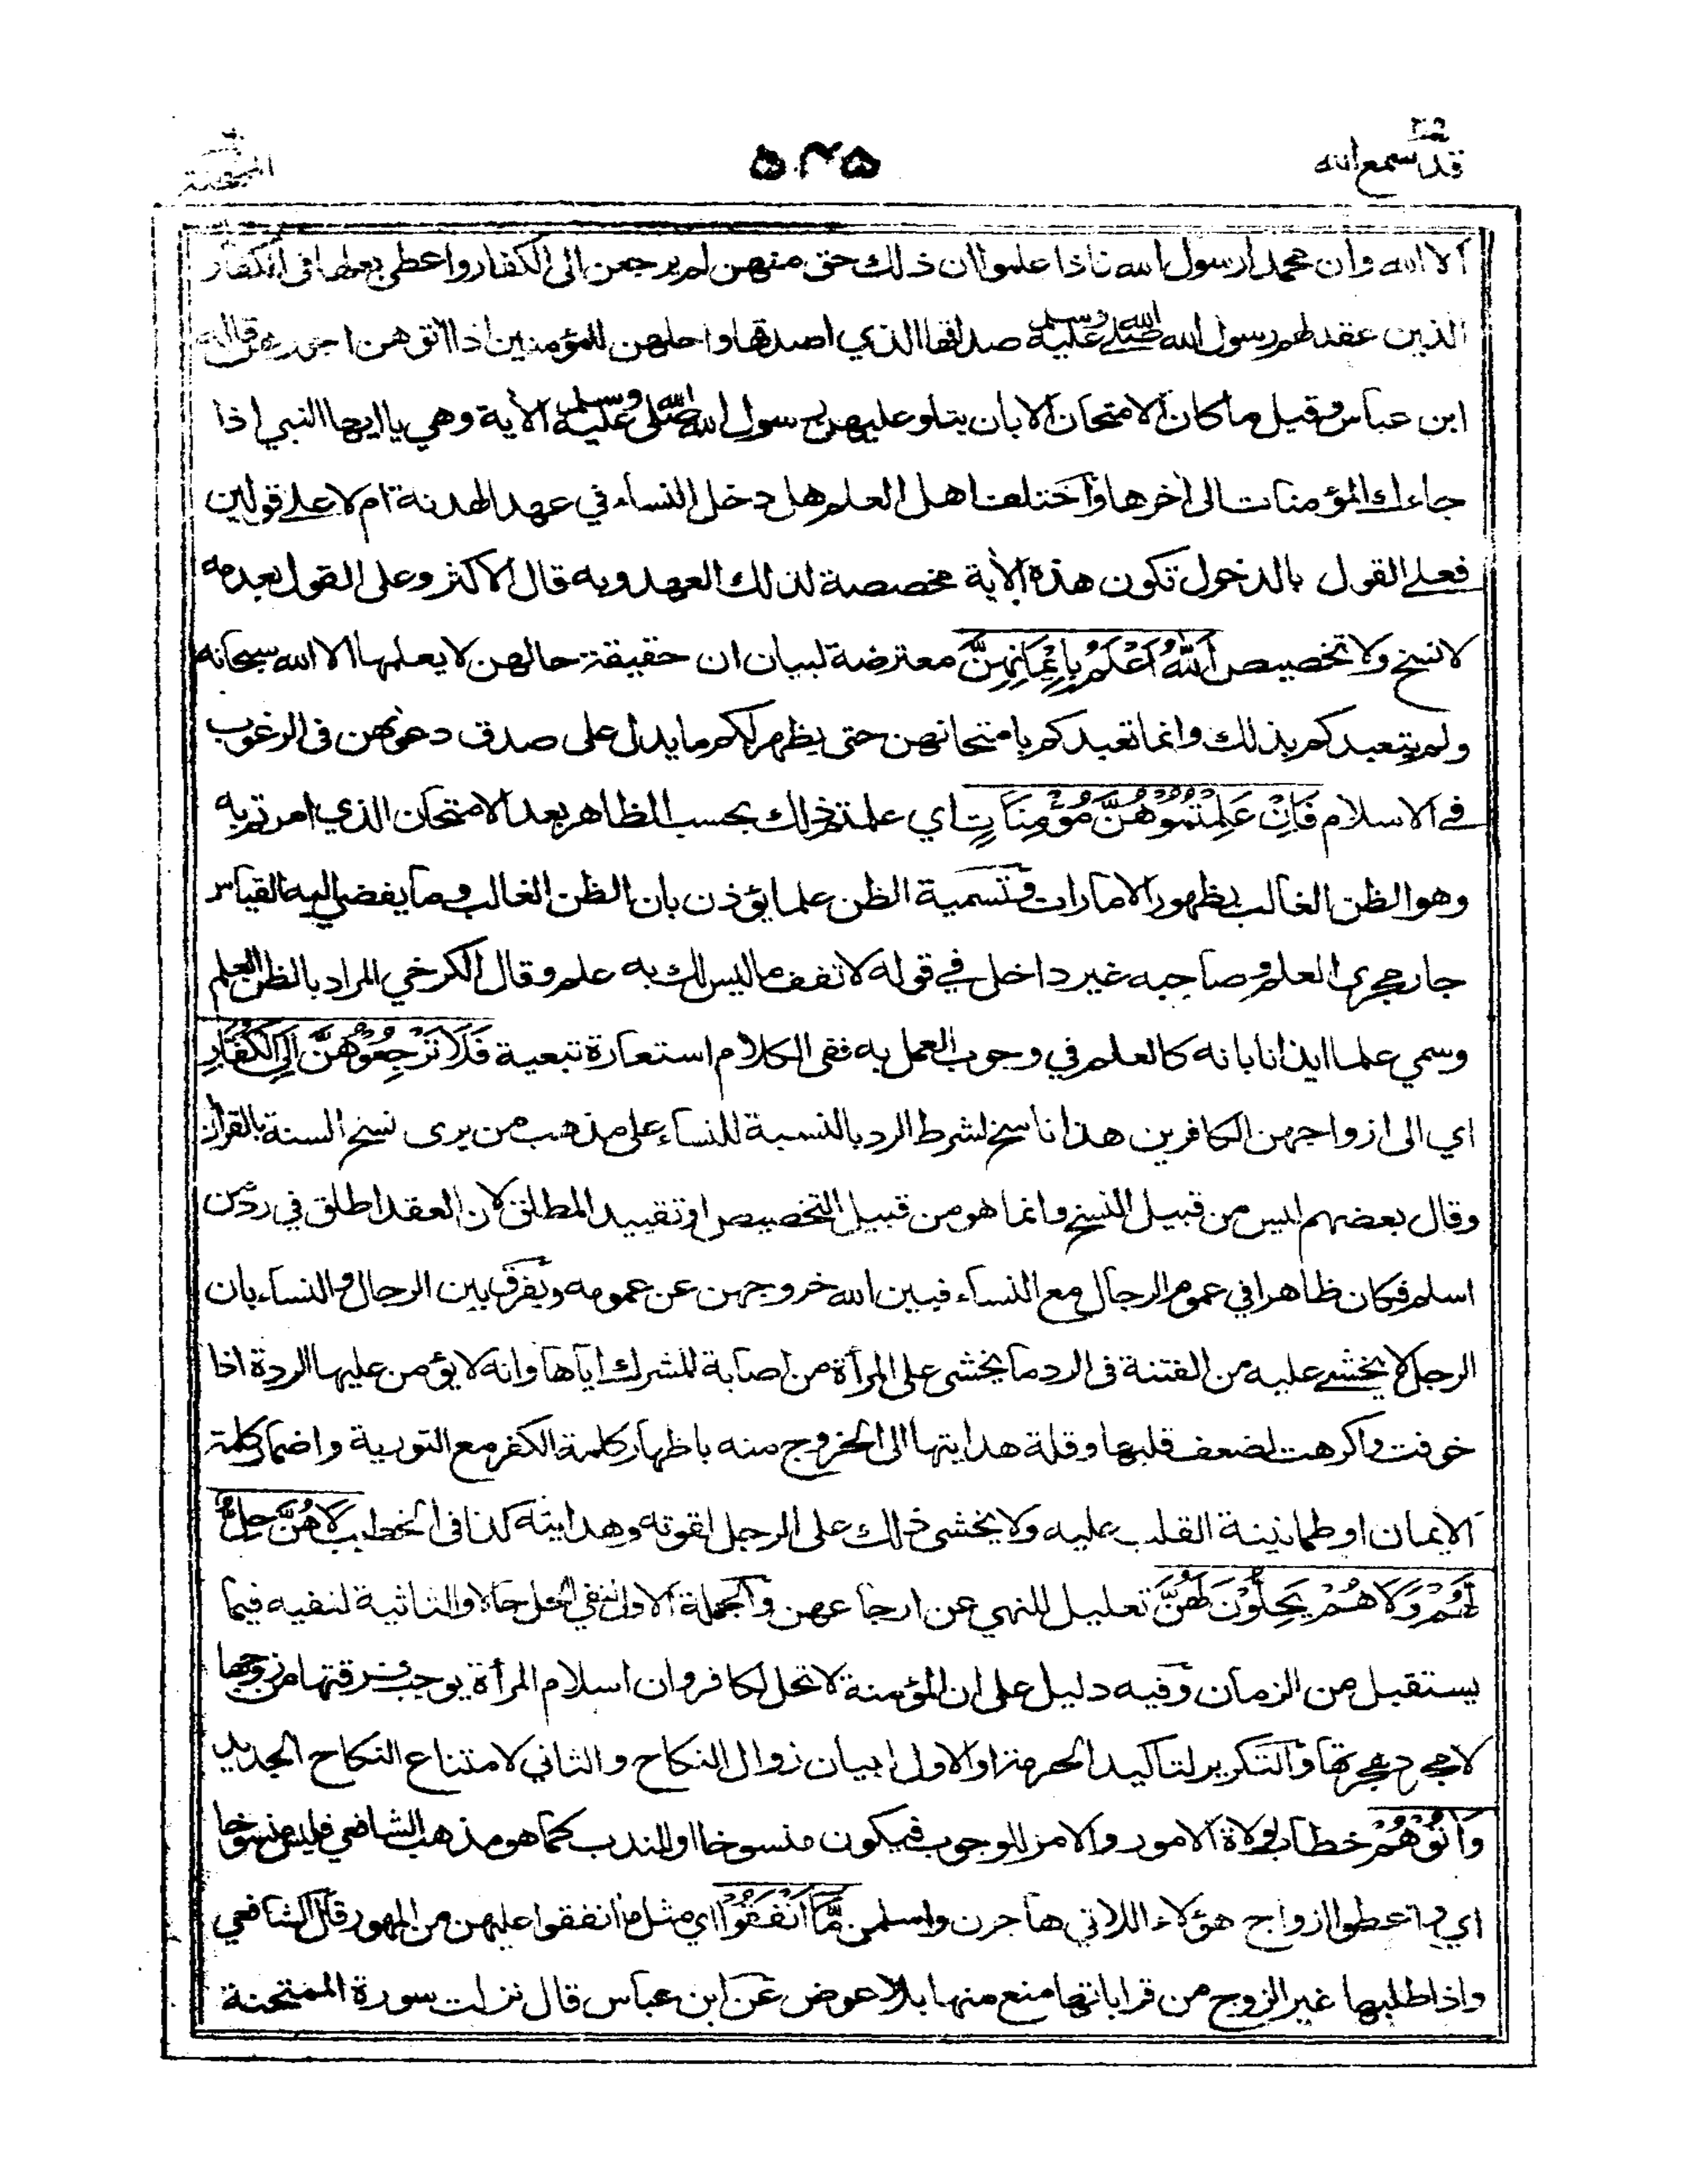 قد سمع الله ٥٢٥ الممتحنة
الا الله وان محمدا رسول الله فاذا علموا ان ذلك حق منهن لم يرجعن الى الكفار واعطى بعلها في الكفار
الذين عقد لهم رسول الله صلى الله عليه وسلم صداقها الذي اصدقها واحلهن للمؤمنين اذا اتوهن اجورهن قاله
ابن عباس وقيل ما كان الامتحان الا بان يتلو عليهن رسول الله صلى الله عليه وسلم الآية وهي يا ايها النبي اذا
جاءك المؤمنات الى اخرها واختلف اهل العلم هل دخل النساء في عهد الهدنة ام لا على قولين
فعلى القول بالدخول تكون هذه الآية مخصصة لذلك العهد وبه قال الاكثر وعلى القول بعدمه
لا نسخ ولا تخصيص اَللّٰهُ اَعْلَمُ بِاِيْمَانِهِنَّ معترضة لبيان ان حقيقة حالهن لا يعلمها الا الله سبحانه
ولم يتعبدكم بذلك وانما تعبدكم بامتحانهن حتى يظهر لكم ما يدل على صدق دعوتهن في الرغوب
في الاسلام فَاِنْ عَلِمْتُمُوْهُنَّ مُؤْمِنَاتٍ اي علمتم ذلك بحسب الظاهر بعد الامتحان الذي امرتم به
وهو الظن الغالب بظهور الامارات وتسمية الظن علما يؤذن بان الظن الغالب وما يفضي اليه القياس
جار مجرى العلم وصاحبه غير داخل في قوله لا تقف ما ليس لك به علم وقال الكرخي المراد بالظن العلم
وسمي علما ايذانا بانه كالعلم في وجوب العمل به ففي الكلام استعارة تبعية فَلَا تَرْجِعُوْهُنَّ اِلَى الْكُفَّارِ
اي الى ازواجهن الكافرين هذا ناسخ لشرط الرد بالنسبة للنساء على مذهب من يرى نسخ السنة بالقرآن
وقال بعضهم ليس من قبيل النسخ وانما هو من قبيل التخصيص او تقييد المطلق لان العقد اطلق في رد من
اسلم فكان ظاهرا في عموم الرجال مع النساء فبين الله خروجهن عن عمومه ويفرق بين الرجال والنساء بان
الرجل لا يخشى عليه من الفتنة في الرد ما يخشى على المرأة من اصابة المشرك اياها وانه لا يؤمن عليها الردة اذا
خوفت واكرهت لضعف قلبها وقلة هدايتها الى الخروج منه باظهار كلمة الكفر مع التورية واضمار كلمة
الايمان او طمانينة القلب عليه ولا يخشى ذلك على الرجل لقوته وهدايته كذا في الخطيب لَا هُنَّ حِلٌّ
لَّهُمْ وَلَا هُمْ يَحِلُّوْنَ لَهُنَّ تعليل للنهي عن ارجاعهن والجملة الاولى لنفي الحل حالا والثانية لنفيه فيما
يستقبل من الزمان وفيه دليل على ان المؤمنة لا تحل لكافر وان اسلام المرأة يوجب فرقتها من زوجها
لا مجرد هجرتها والتكرير لتاكيد الحرمة او الاول لبيان زوال النكاح والثاني لامتناع النكاح الجديد
وَاٰتُوْهُمْ خطاب لولاة الامور والامر للوجوب فيكون منسوخا او للندب كما هو مذهب الشافعي فليس منسوخا
اي واعطوا ازواج هؤلاء اللاتي هاجرن واسلمن مَّا اَنْفَقُوْا اي مثل ما انفقوا عليهن من المهور قال الشافعي
واذا طلبها غير الزوج من قراباتها منع منها بلا عوض عن ابن عباس قال نزلت سورة الممتحنة